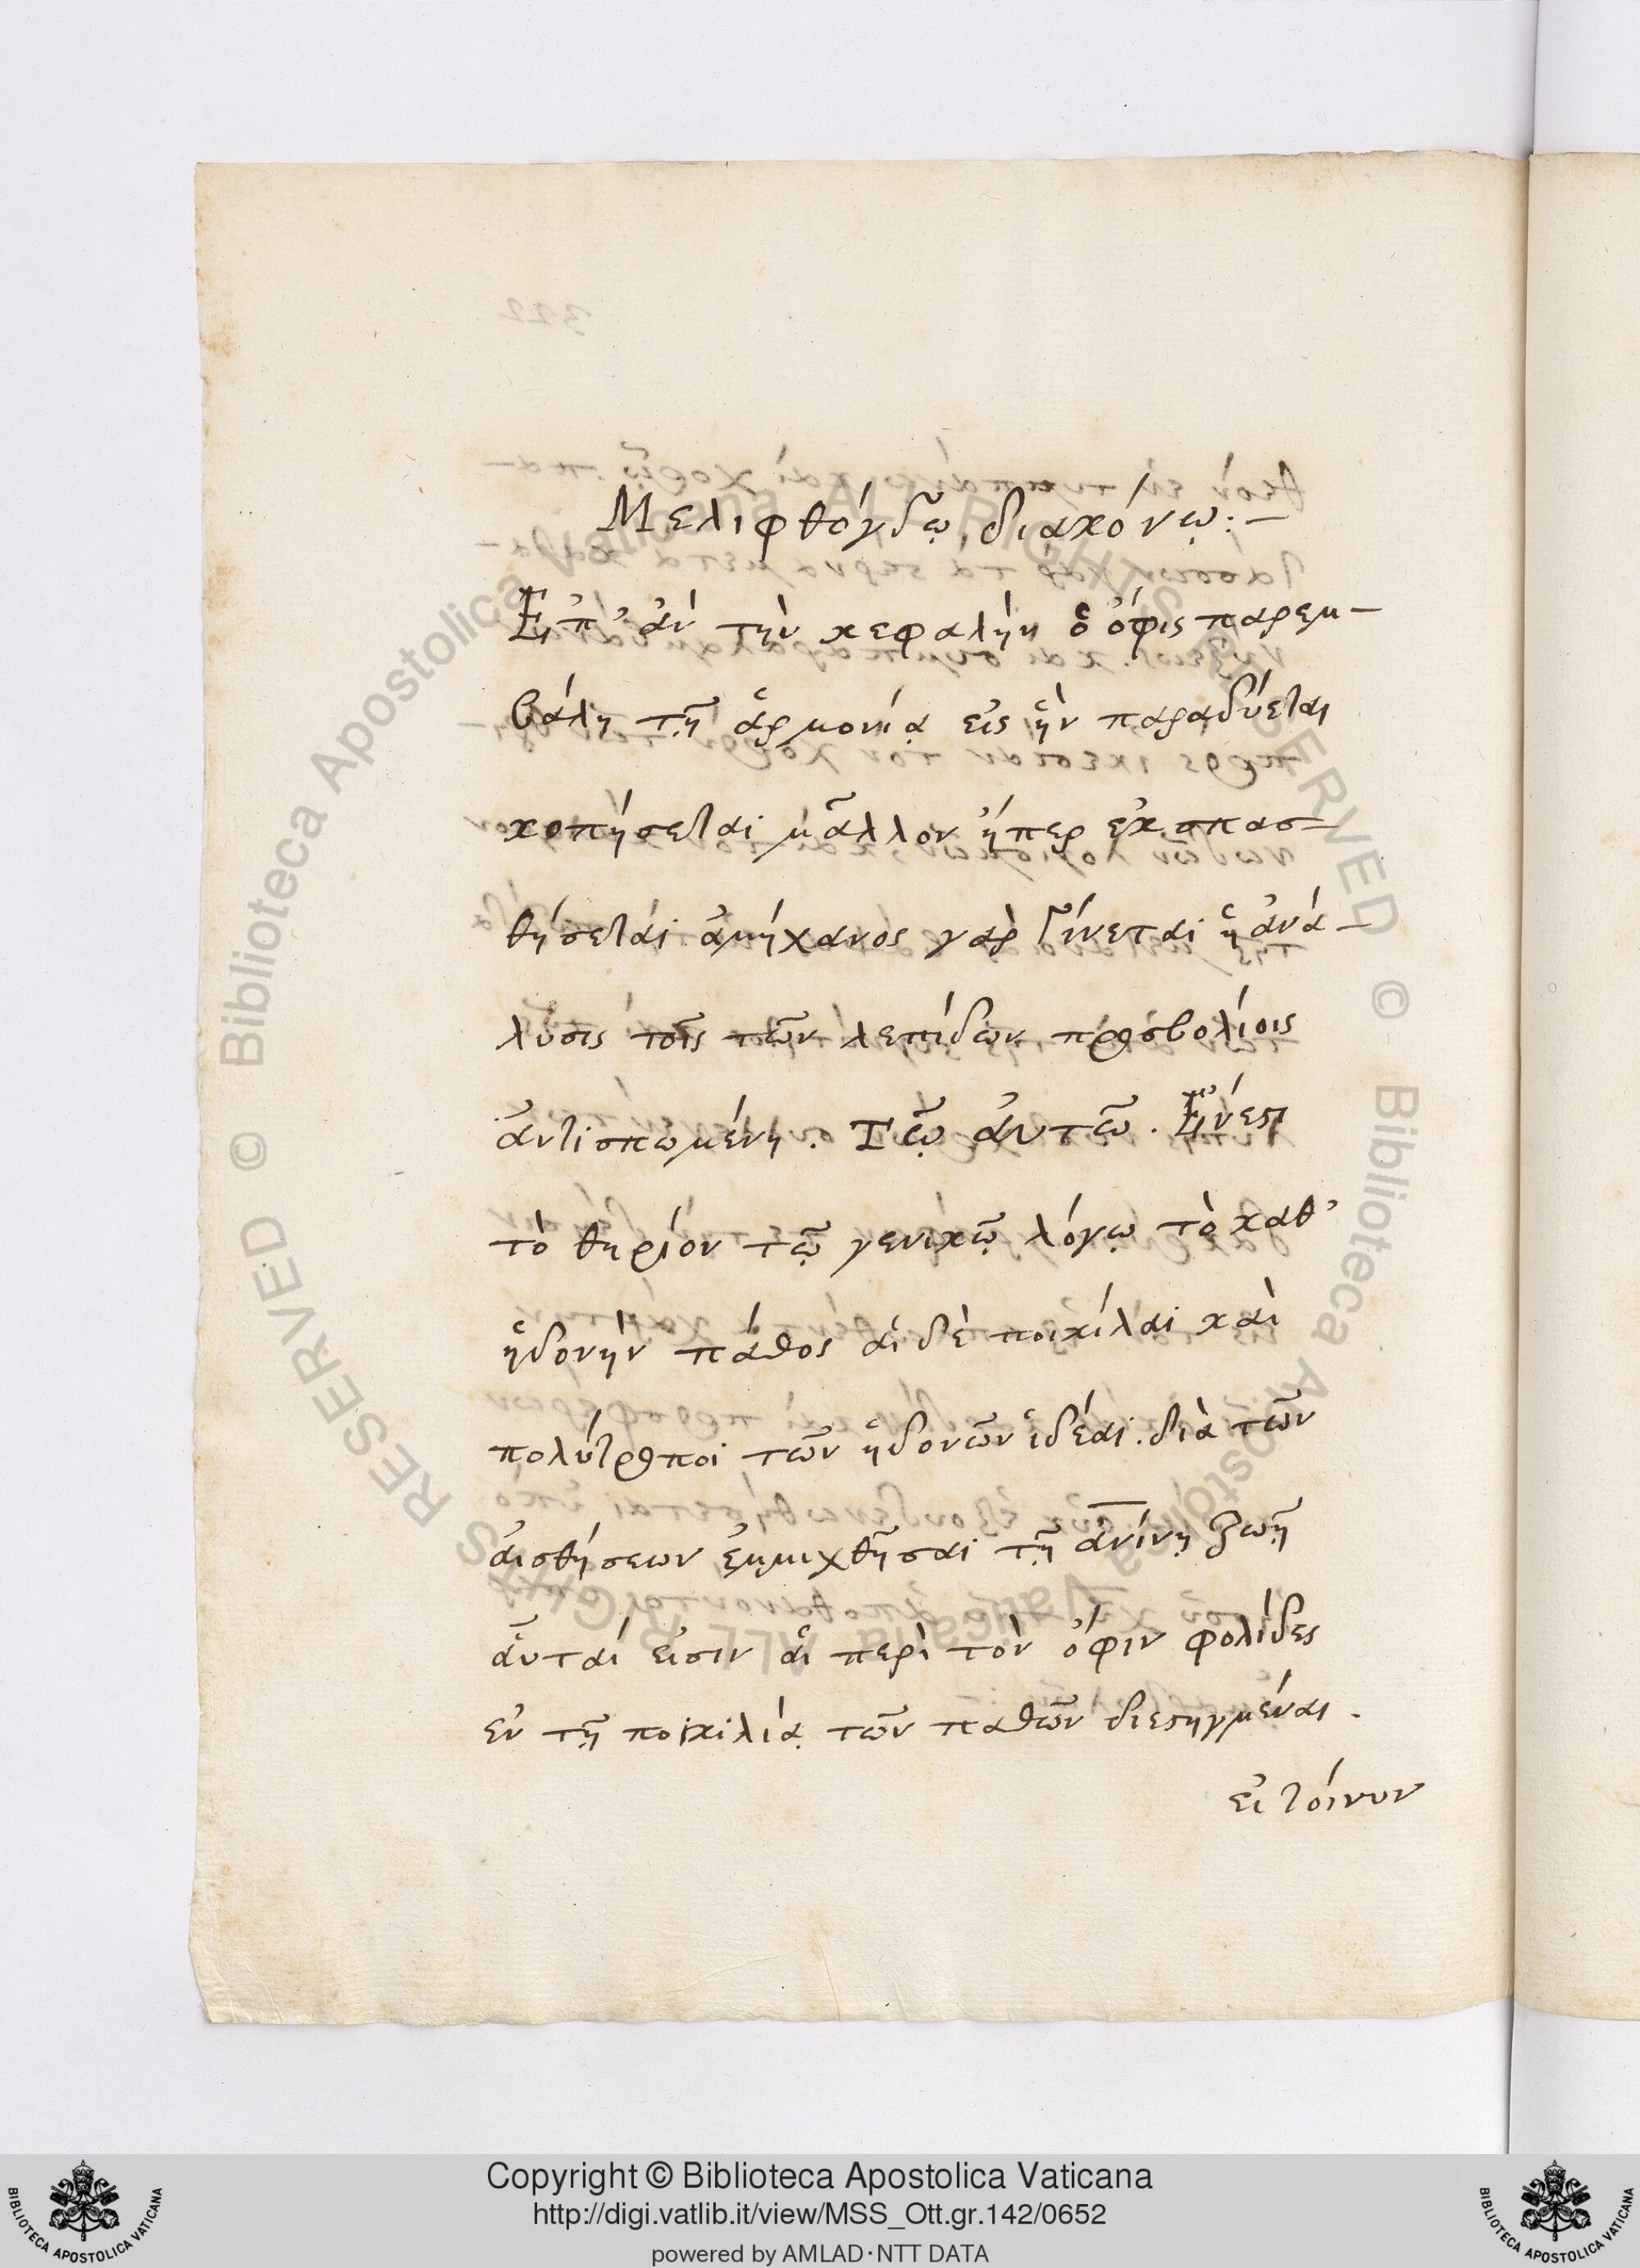 Μελιφθόγδῳ διακόνῳ:—
Ἐπ' ἀν τὴν κεφαλὴν ὁ ὄφις παρεμ-
βάλη τῇ ἁρμονίᾳ εἰς ἣν παραδύεται
κοπήσεται μᾶλλον ἤπερ ἐκσπασ-
θήσεται ἀμήχανος γὰρ γίνεται ἡ ἀνά-
λυσις τοῖς τῶν λεπίδων προσβολίοις
ἀντισπωμένη. Τῷ ἀυτῶ. Ἔνεστι
τὸ θηρίον τῷ γενικῷ λόγῳ τὸ καθ'
ἡδονὴν πάθος ἁι δὲ ποικίλαι καὶ
πολύτροποι τῶν ἡδονῶν ἰδέαι. διὰ τῶν
ἀισθήσεων ἐμμιχθῆσαι τῇ ἀνίνῃ ζωῇ
ἁυταί εἰσιν ἁι περὶ τὸν ὄφιν φολίδες
ἐν τῇ ποικιλίᾳ τῶν παθῶν διεστιγμέναι.
εἰ τοίνυν
Copyright © Biblioteca Apostolica Vaticana
http://digi.vatlib.it/view/MSS_Ott.gr.142/0652
powered by AMLAD·NTT DATA
BIBLIOTECA APOSTOLICA VATICANA
BIBLIOTECA APOSTOLICA VATICANA
© Biblioteca Apostolica Vaticana ALL RIGHTS RESERVED © Biblioteca Apostolica Vaticana ALL RIGHTS RESERVED